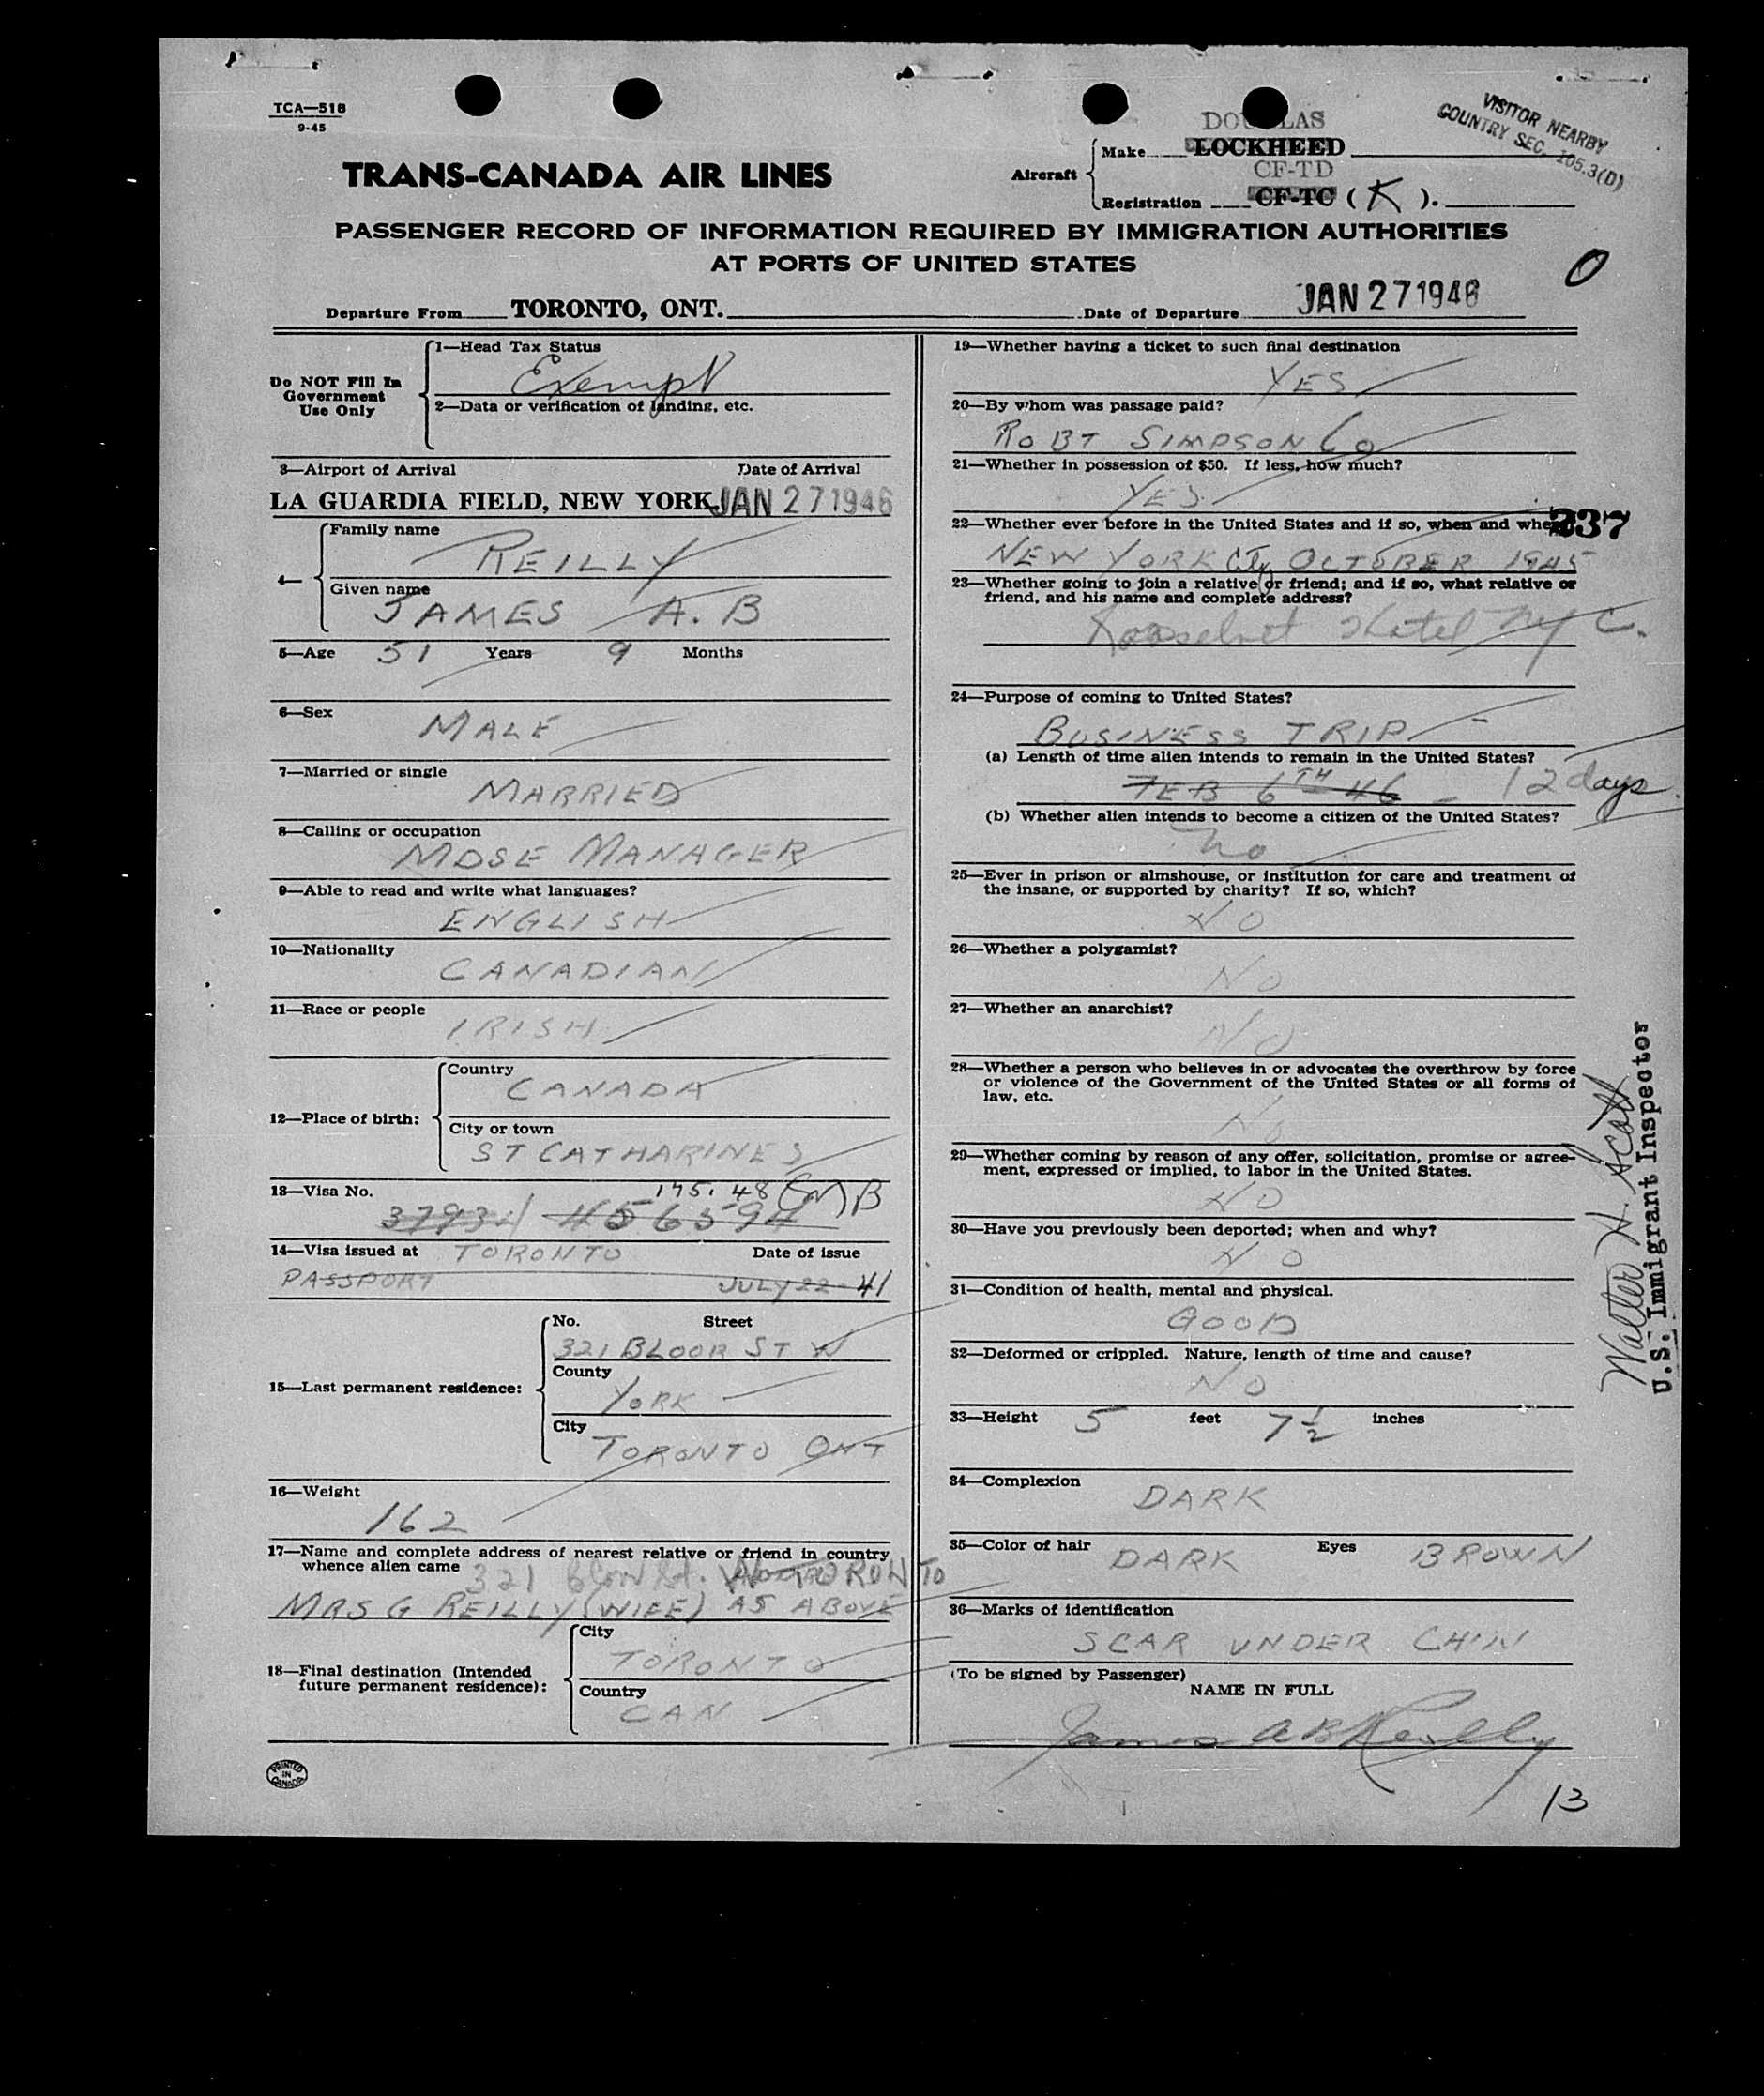 TCA—518
9-45
VISITOR NEARBY
COUNTRY SEC. 105.3(D)
TRANS-CANADA AIR LINES
DOUGLAS
Aircraft
Make LOCKHEED
CF-TD
Registration CF-TC ( K ).
PASSENGER RECORD OF INFORMATION REQUIRED BY IMMIGRATION AUTHORITIES
AT PORTS OF UNITED STATES
0
Departure From TORONTO, ONT. Date of Departure JAN 27 1946
Do NOT Fill In
Government
Use Only
1—Head Tax Status
Exempt
2—Data or verification of landing, etc.
3—Airport of Arrival Date of Arrival
LA GUARDIA FIELD, NEW YORK JAN 27 1946
4—
Family name
REILLY
Given name
JAMES A. B
5—Age 51 Years 9 Months
6—Sex
MALE
7—Married or single
MARRIED
8—Calling or occupation
MDSE MANAGER
9—Able to read and write what languages?
ENGLISH
10—Nationality
CANADIAN
11—Race or people
IRISH
12—Place of birth:
Country
CANADA
City or town
ST CATHARINES
13—Visa No. 175.48 B
37931 456594
14—Visa issued at TORONTO Date of issue
PASSPORT JULY 22 - 41
15—Last permanent residence:
No. Street
321 BLOOR ST W
County
YORK
City
TORONTO ONT
16—Weight
162
17—Name and complete address of nearest relative or friend in country
whence alien came 321 Bloor St. W TORONTO
MRS G REILLY (WIFE) AS ABOVE
18—Final destination (Intended
future permanent residence):
City
TORONTO
Country
CAN
PRINTED
IN
CANADA
19—Whether having a ticket to such final destination
YES
20—By whom was passage paid?
ROBT SIMPSON Co
21—Whether in possession of $50. If less, how much?
YES
22—Whether ever before in the United States and if so, when and where
237
NEW YORK City OCTOBER 1945
23—Whether going to join a relative or friend; and if so, what relative or
friend, and his name and complete address?
Roosevelt Hotel NY C.
24—Purpose of coming to United States?
BUSINESS TRIP
(a) Length of time alien intends to remain in the United States?
FEB 6TH 46 - 12 days
(b) Whether alien intends to become a citizen of the United States?
No
25—Ever in prison or almshouse, or institution for care and treatment of
the insane, or supported by charity? If so, which?
NO
26—Whether a polygamist?
NO
27—Whether an anarchist?
NO
28—Whether a person who believes in or advocates the overthrow by force
or violence of the Government of the United States or all forms of
law, etc.
No
29—Whether coming by reason of any offer, solicitation, promise or agree-
ment, expressed or implied, to labor in the United States.
NO
30—Have you previously been deported; when and why?
NO
31—Condition of health, mental and physical.
GOOD
32—Deformed or crippled. Nature, length of time and cause?
NO
33—Height 5 feet 7 1/2 inches
34—Complexion
DARK
35—Color of hair DARK Eyes BROWN
36—Marks of identification
SCAR UNDER CHIN
(To be signed by Passenger)
NAME IN FULL
James A B Reilly
13
Walter H. Scott
U.S. Immigrant Inspector